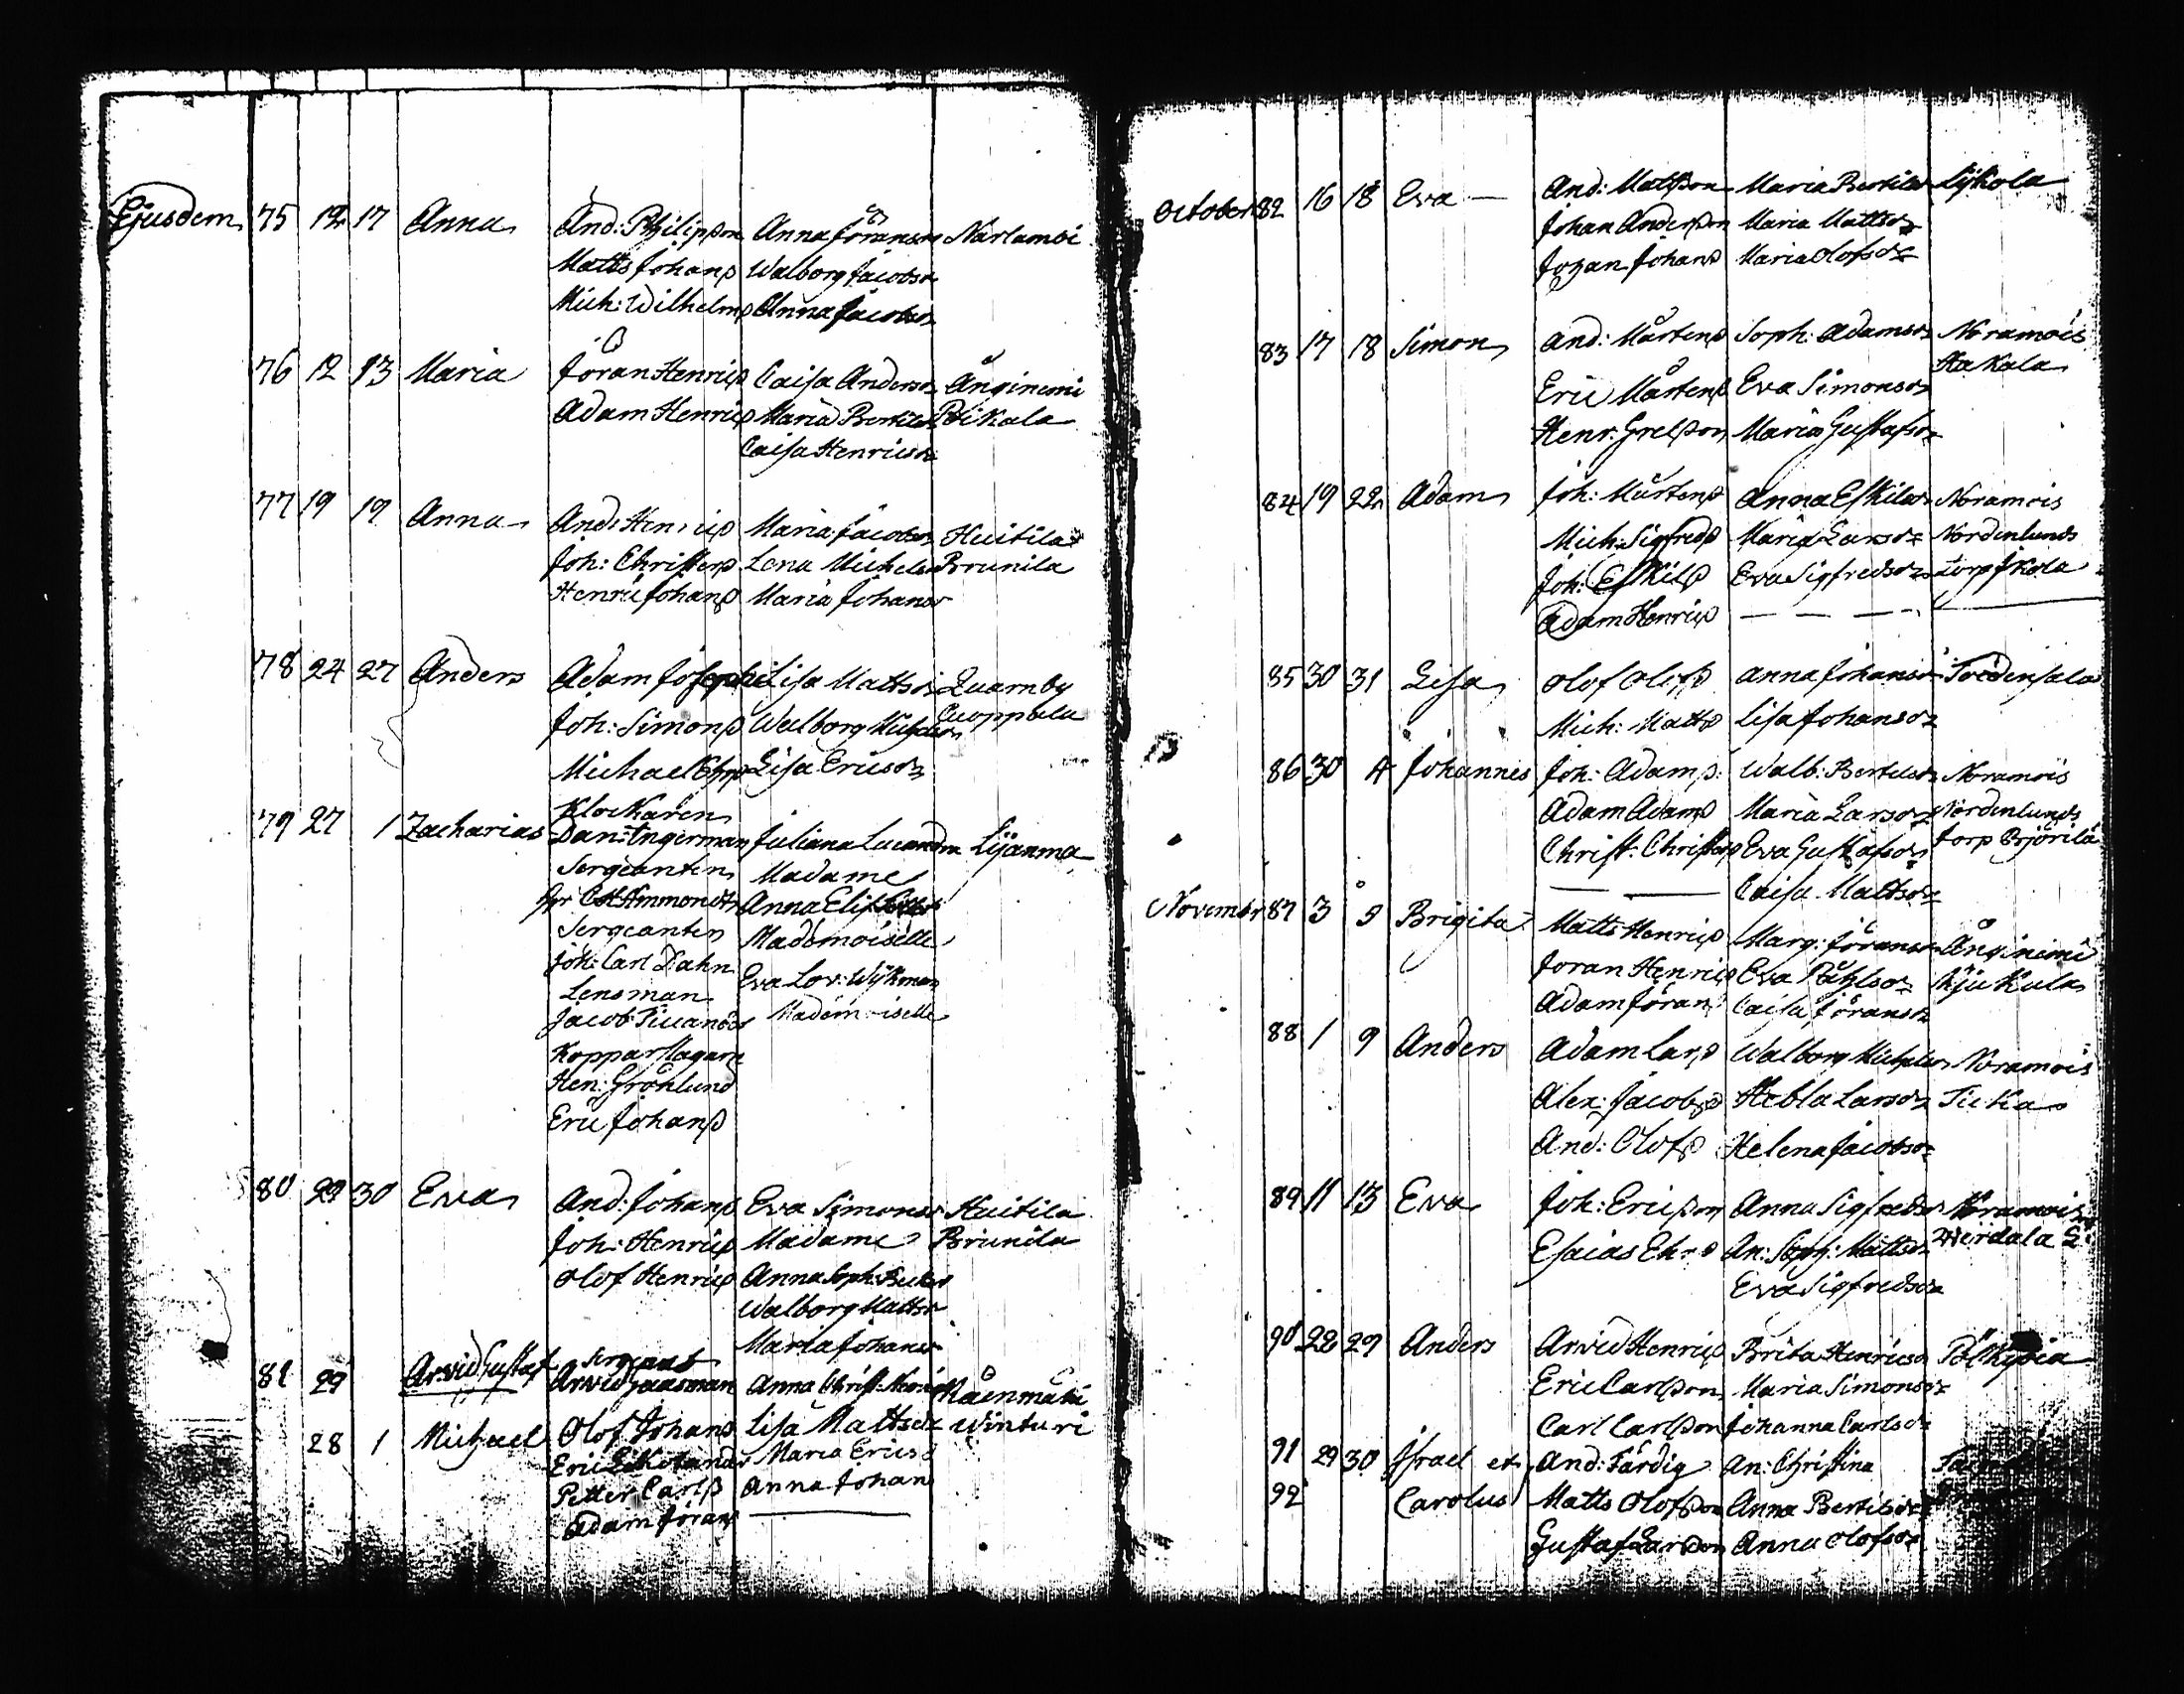 Ejusdem 75 12 17 Anna And: Philipsson Anna Göransdr Närlambi
Matts Johanss Walborg Jacobsdr
Mich: Wilhelmss Anna Jacobsdr
76 12 13 Maria Jöran Henricss Caisa Andersdr Ånginemi
Adam Henricss Maria Bertilsdr Pikala
Caisa Henricsdr
77 19 19 Anna And: Henricss Maria Jacobsdr Huitila
Joh: Christerss Lena Michelsdr Brunila
Henric Johanss Maria Johansdr
78 24 27 Anders Adam Josephi Lisa Mattsdr Quarnby
Joh: Simonss Walborg Michelsdr Quoppala
Michael Lisa Ericsdr
Klockaren
79 27 1 Zacharias Dan: Ingerman Juliana Lucandra Lijanma
Sergeanten Madame
Anna Elis:
Sergeanten Mademoiselle
Joh: Carl Dahn Eva Lov: Wijkman
Lensman Mademoiselle
Jacob
Kopparslagare
Hen: Grönlund
Eric Johanss
80 29 30 Eva And: Johanss Eva Simonsdr Huitila
Joh: Henricss Madame Brunila
Olof Henricss Anna Soph: Becker
Walborg Mattsdr
Maria Johansdr
Sergeant
81 29 Arvid Gustaf Arvid Gaasman Anna Christ:
28 1 Michael Olof Johans Lisa Mattsdr Winturi
Eric Maria Ericsd
Petter Carlss Anna Johansd
Adam Jörans
October 82 16 18 Eva — And: Mattsson Maria Bertilsdr Lijkola
Johan Andersson Maria Mattsdr
Johan Johans Maria Olofsdr
83 17 18 Simon And: Mårtenss Soph: Adamsdr Noramois
Hakala
Eric Mårtenss Eva Simonsdr
Henr: Grelsson Maria Gustafsdr
84 19 22 Adam Joh: Mårtenss Anna Eskilsdr Noramois
Mich: Sigfredss Maria Larsdr Nordenlunds
Joh: Eskilss Eva Sigfredsdr Torp Skola
Adam Henricss — — — —
85 30 31 Lisa Olof Olofss Anna Johansdr Fredensala
Mich: Matts Lisa Johansdr
86 30 4 Johannes Joh: Adamss: Walb: Bertelsdr Noramois
Adam Adams Maria Larsdr Nordenlunds
Christ: Christerss Eva Gustafsdr Torp Björilä
— — Caisa Mattsdr
Novembr 87 3 9 Brigita Matts Henricss Marg: Jöransdr Ånginemi
Jöran Henricss Eva Påhlsdr Kjukula
Adam Jörans Caisa Jöransdr
88 1 9 Anders Adam Larss Walborg Michelsdr Noramois
Alex: Jacobss Hebla Larsdr Ticka
And: Olofss Helena Jacobsdr
89 11 13 Eva Joh: Ericsson Anna Sigfredsdr Noramois
Esaias An: Soph: Mattsdr Wiirdala
Eva Sigfredsdr
90 22 29 Anders Arvid Henricss Brita Henricsdr
Eric Carlsson Maria Simonsdr
Carl Carlsson Johanna Carlsdr
91 29 30 Israel et And: Färdig An: Christina
92 Carolus Matts Olofsson Anna Bertilsdr
Gustaf Larsson Anna Olofsdr